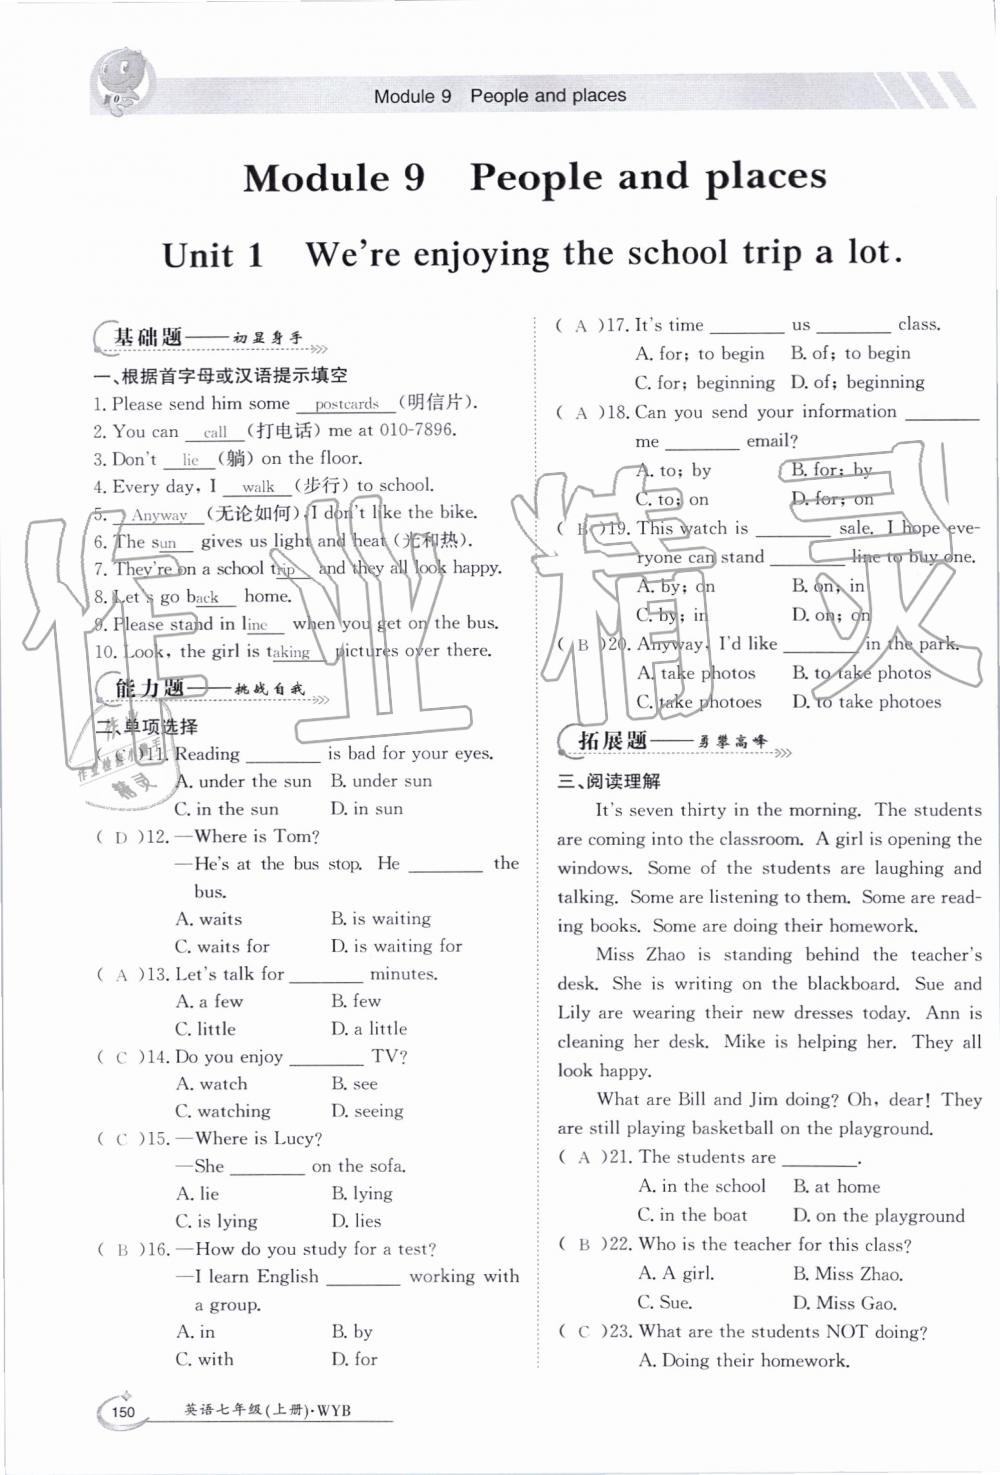 Module 9 People and places
Module 9 People and places
Unit 1 We're enjoying the school trip a lot.
基础题——初显身手
一、根据首字母或汉语提示填空
1. Please send him some postcards (明信片).
2. You can call (打电话) me at 010-7896.
3. Don't lie (躺) on the floor.
4. Every day, I walk (步行) to school.
5. Anyway (无论如何), I don't like the bike.
6. The sun gives us light and heat (光和热).
7. They're on a school trip and they all look happy.
8. Let's go back home.
9. Please stand in line when you get on the bus.
10. Look, the girl is taking pictures over there.
能力题——挑战自我
二、单项选择
( C )11. Reading ________ is bad for your eyes.
A. under the sun B. under sun
C. in the sun D. in sun
( D )12. —Where is Tom?
—He's at the bus stop. He ________ the
bus.
A. waits B. is waiting
C. waits for D. is waiting for
( A )13. Let's talk for ________ minutes.
A. a few B. few
C. little D. a little
( C )14. Do you enjoy ________ TV?
A. watch B. see
C. watching D. seeing
( C )15. —Where is Lucy?
—She ________ on the sofa.
A. lie B. lying
C. is lying D. lies
( B )16. —How do you study for a test?
—I learn English ________ working with
a group.
A. in B. by
C. with D. for
( A )17. It's time ________ us ________ class.
A. for; to begin B. of; to begin
C. for; beginning D. of; beginning
( A )18. Can you send your information ________
me ________ email?
A. to; by B. for; by
C. to; on D. for; on
( B )19. This watch is ________ sale. I hope eve-
ryone can stand ________ line to buy one.
A. by; on B. on; in
C. by; in D. on; on
( B )20. Anyway, I'd like ________ in the park.
A. take photos B. to take photos
C. take photoes D. to take photoes
拓展题——勇攀高峰
三、阅读理解
It's seven thirty in the morning. The students
are coming into the classroom. A girl is opening the
windows. Some of the students are laughing and
talking. Some are listening to them. Some are read-
ing books. Some are doing their homework.
Miss Zhao is standing behind the teacher's
desk. She is writing on the blackboard. Sue and
Lily are wearing their new dresses today. Ann is
cleaning her desk. Mike is helping her. They all
look happy.
What are Bill and Jim doing? Oh, dear! They
are still playing basketball on the playground.
( A )21. The students are ________.
A. in the school B. at home
C. in the boat D. on the playground
( B )22. Who is the teacher for this class?
A. A girl. B. Miss Zhao.
C. Sue. D. Miss Gao.
( C )23. What are the students NOT doing?
A. Doing their homework.
150 英语七年级(上册)·WYB
作业精灵